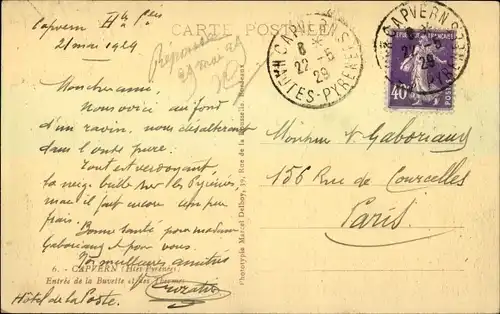 CARTE POSTALE
Capvern Htes Pées
21 mai 1929
Répondu
29 mai 29
CAPVERN
HAUTES-PYRENEES
8 *
22 -5
29
CAPVERN
8
22 -5
29
POSTES
40c
Mon cher ami,
Nous voici au fond
d'un ravin, nous désaltérant
dans l'onde pure.
Tout est verdoyant,
la neige brille sur les Pyrénées,
mais il fait encore un peu
frais.
Bonne santé pour madame
Gaboriaud et pour vous.
Vos meilleures amitiés
Hôtel de la Poste.
6. - CAPVERN (Htes-Pyrénées)
Entrée de la Buvette et des Thermes
Phototypie Marcel Delboy, Bordeaux
Monsieur Gaboriaud
156 Rue de Courcelles
Paris